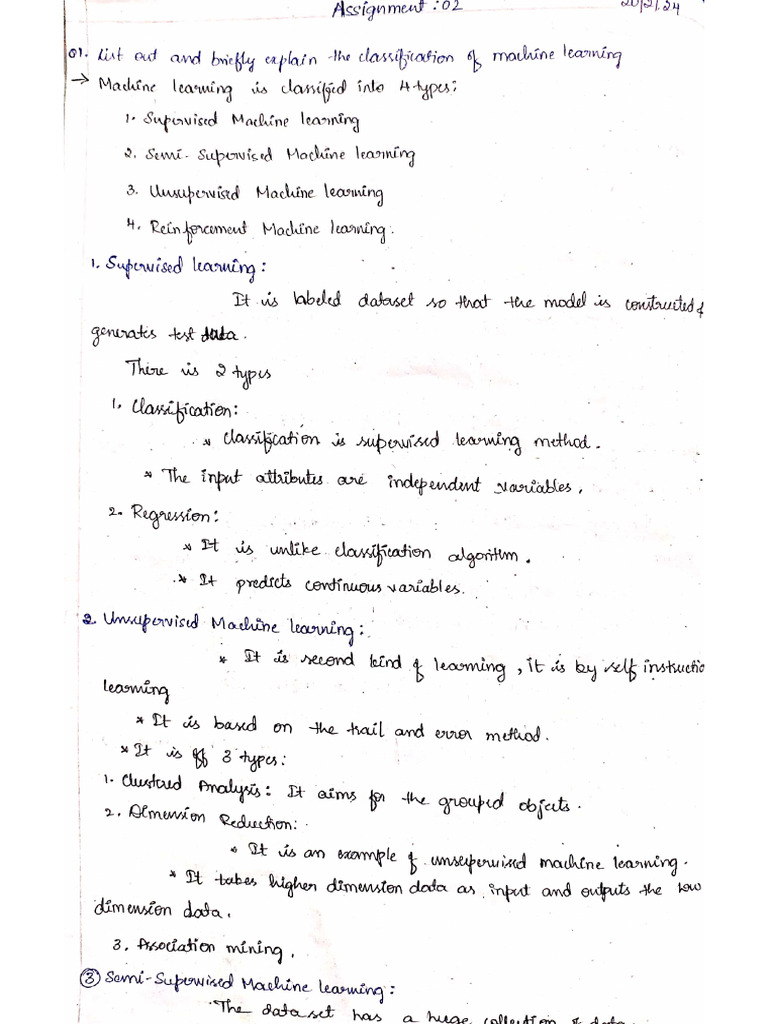 Assignment : 02
20/2/24
01. List out and briefly explain the classification of machine learning
→ Machine learning is classified into 4 types:
1. Supervised Machine learning
2. Semi-Supervised Machine learning
3. Unsupervised Machine learning
4. Reinforcement Machine learning.
1. Supervised learning:
It is labeled dataset so that the model is constructed &
generates test data.
There is 2 types
1. Classification:
* Classification is supervised learning method.
* The input attributes are independent variables.
2. Regression:
* It is unlike classification algorithm.
* It predicts continuous variables.
2. Unsupervised Machine learning:
* It is second kind of learning, it is by self instructio
learning
* It is based on the trail and error method.
* It is of 3 types:
1. Clustered Analysis: It aims for the grouped objects.
2. Dimension Reduction:
* It is an example of unsupervised machine learning.
* It takes higher dimension data as input and outputs the low
dimension data.
3. Association mining.
③ Semi-Supervised Machine learning:
The dataset has a huge collection of data